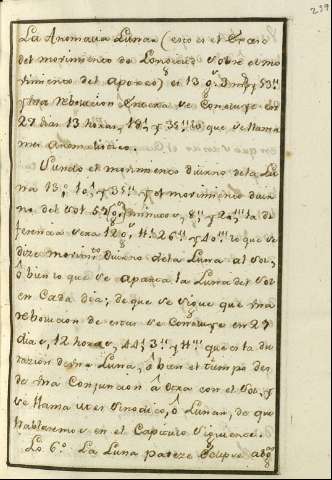 239
La Anomalia Lunar (esto es el Exceso
del movimiento de Longitud sobre el mo
vimiento del Apogeo) es 13 gs. 3 ms. y 53ss.
y una Rebolucion Entera se Concluye en
27 dias 13 horas, 18s. y 35ss. lo que se llama
mes Anomalistico.
Siendo el movimiento diurno de la Lu
na 13s. 10s. y 35ss. y el movimiento diur
no del sol 59 minutos, 8ss. y 20s. la di
ferencia sera 12gs. 11s. 26ss. y 40s. lo que se
dize movimto. Diurno de la Luna al sol,
ô bien lo que se aparta la Luna del sol
en Cada dia; de que se sigue que una
rebolucion de estas se Concluye en 29
dias, 12 horas, 44s. 3ss. y 11s. que es la du
razion de una Luna, ô bien el tiempo des
de una Conjuncion â otra con el sol, y
se llama mes sinodico, ô Lunar, de que
hablaremos en el Capitulo siguiente.
Lo 6º. La Luna padeze Eclipse